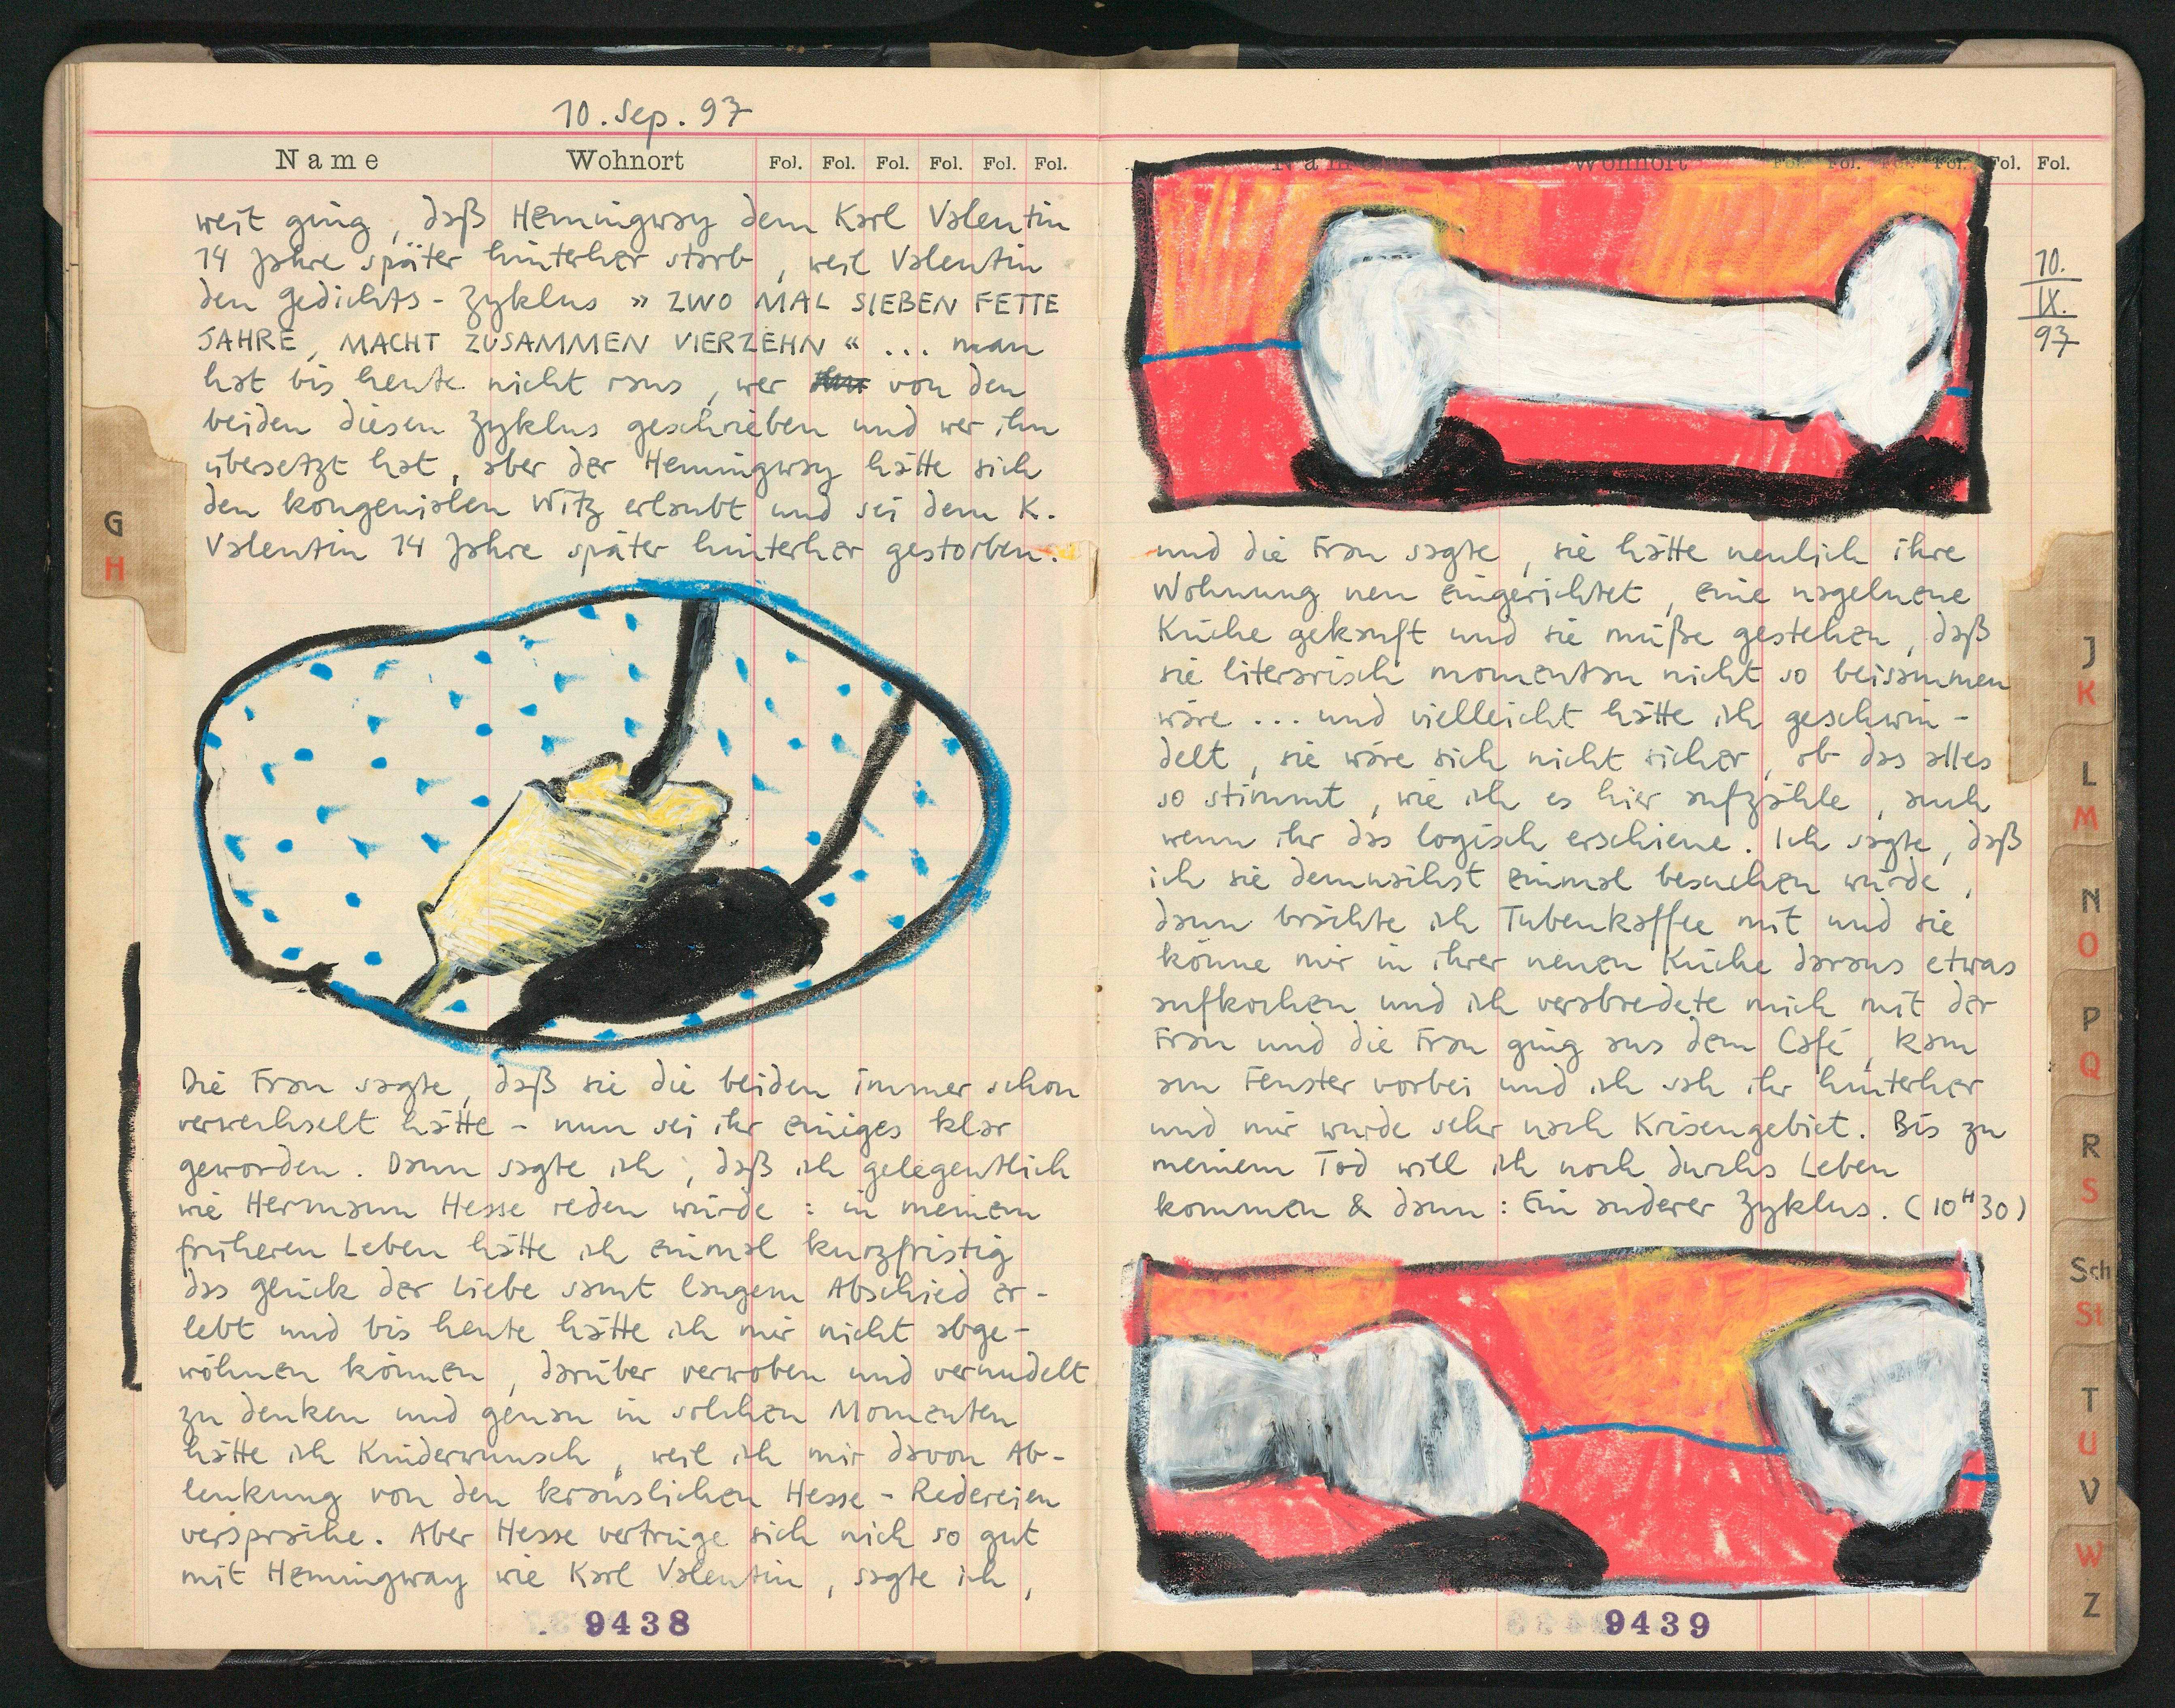 10. Sep. 97
Name Wohnort Fol. Fol. Fol. Fol. Fol. Fol.
weit ging, daß Hemingway dem Karl Valentin
14 Jahre später hinterher starb, weil Valentin
den Gedichts-Zyklus » ZWO MAL SIEBEN FETTE
JAHRE, MACHT ZUSAMMEN VIERZEHN « ... man
hat bis heute nicht raus, wer von den
beiden diesen Zyklus geschrieben und wer ihn
übersetzt hat, aber der Hemingway hätte sich
den kongenialen Witz erlaubt und sei dem K.
Valentin 14 Jahre später hinterher gestorben.
G
H
Die Frau sagte, daß sie die beiden immer schon
verwechselt hätte - nun sei ihr einiges klar
geworden. Dann sagte ich, daß ich gelegentlich
wie Hermann Hesse reden würde : in meinem
früheren Leben hätte ich einmal kurzfristig
das Glück der Liebe samt langem Abschied er-
lebt und bis heute hätte ich mir nicht abge-
wöhnen können, darüber verwoben und vernudelt
zu denken und genau in solchen Momenten
hätte ich Kinderwunsch, weil ich mir davon Ab-
lenkung von den krauslichen Hesse-Redereien
verspräche. Aber Hesse vertrüge sich nich so gut
mit Hemingway wie Karl Valentin, sagte ich,
9438
Name Wohnort Fol. Fol. Fol. Fol. Fol. Fol.
10.
IX.
97
und die Frau sagte, sie hätte neulich ihre
Wohnung neu eingerichtet, eine nagelneue
Küche gekauft und sie müße gestehen, daß
sie literarisch momentan nicht so beisammen
wäre ... und vielleicht hätte ich geschwin-
delt, sie wäre sich nicht sicher, ob das alles
so stimmt, wie ich es hier aufzähle, auch
wenn ihr das logisch erschiene. Ich sagte, daß
ich sie demnächst einmal besuchen würde,
dann brächte ich Tubenkaffee mit und sie
könne mir in ihrer neuen Küche daraus etwas
aufkochen und ich verabredete mich mit der
Frau und die Frau ging aus dem Café, kam
am Fenster vorbei und ich sah ihr hinterher
und mir wurde sehr nach Krisengebiet. Bis zu
meinem Tod will ich noch durchs Leben
kommen & dann : Ein anderer Zyklus. (10H30)
9439
J
K
L
M
N
O
P
Q
R
S
Sch
St
T
U
V
W
Z